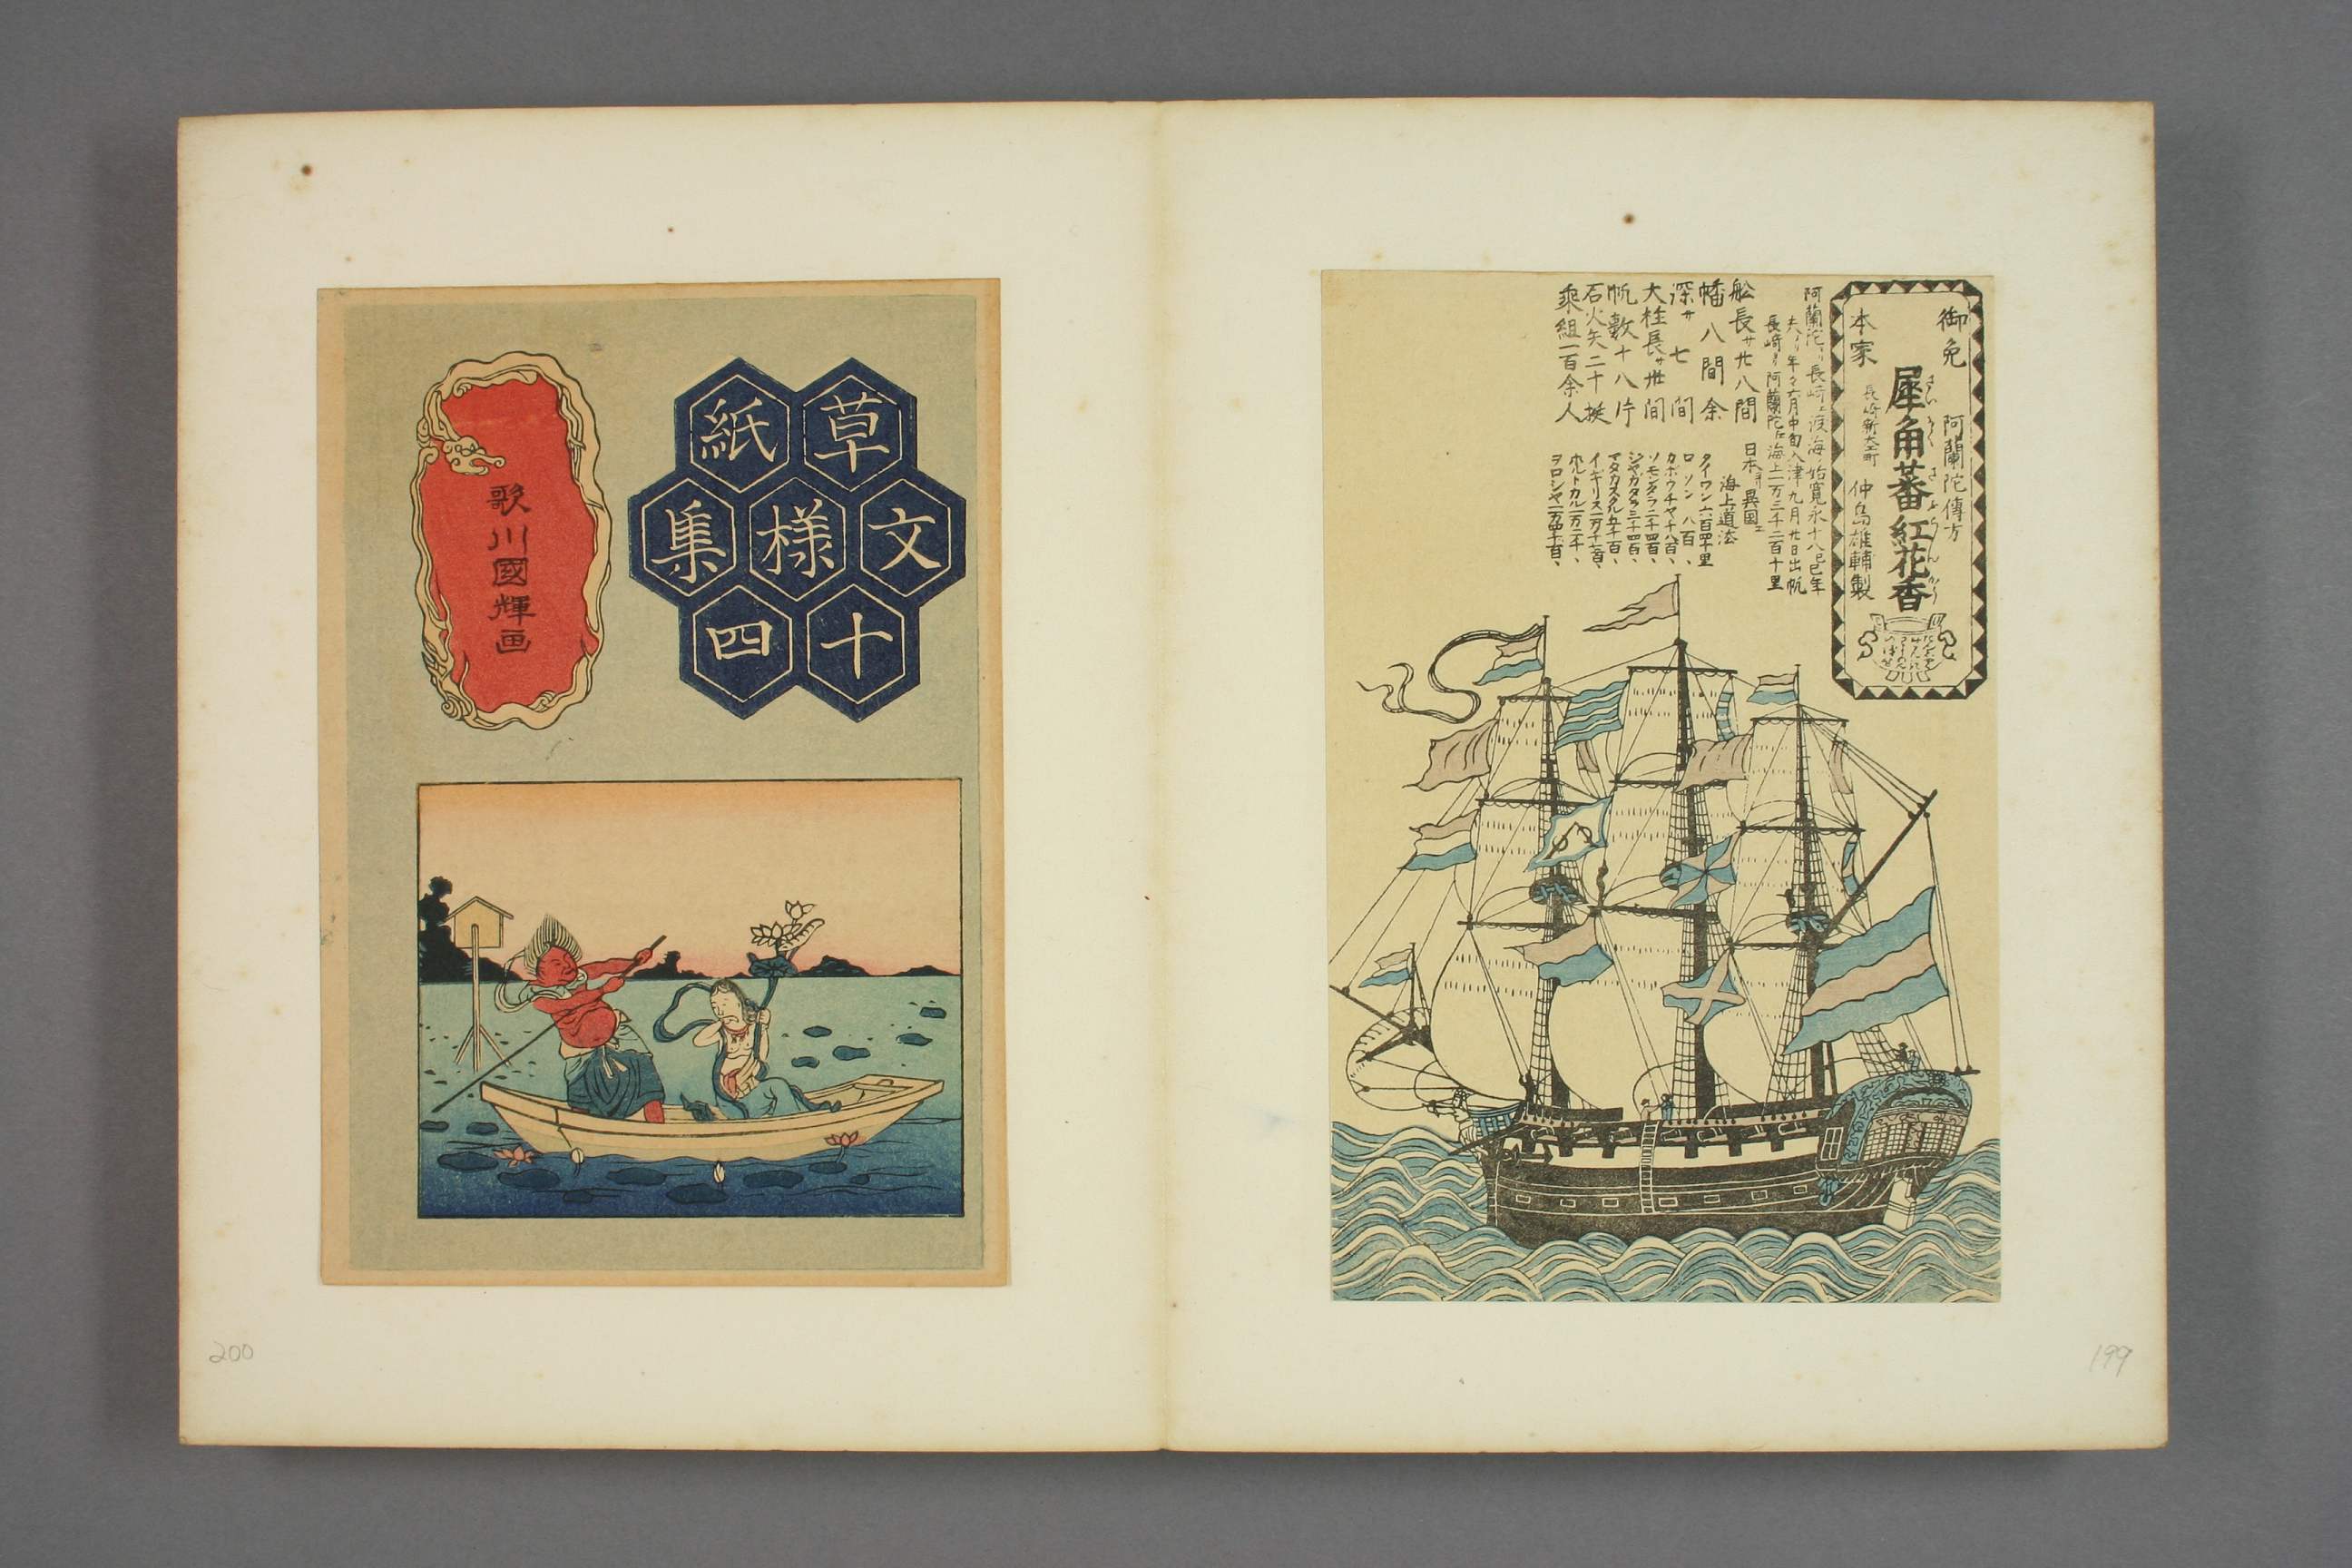 御免
阿蘭陀傳方
犀角蕃紅花香
さいかく さふらんかう
本家
長崎新大工町
仲島雄輔製
阿蘭陀ヨリ長崎エ渡海ノ始寛永十八辛巳年
夫ヨリ年々六月中旬入津九月廿日出帆
長崎ヨリ阿蘭陀迄海上一万三千二百十里
舩長サ廿八間
幡八間余
深サ七間
大柱長サ卅間
帆數十八片
石火矢二十挺
乗組一百余人
日本ヨリ異國エ
海上道法
タイワン六百四十里
ロソン八百、
カボウチヤ千八百、
ソモンタラ二千四百、
ジヤガタラ三千四百、
マタカスクル五千百、
イギリス一万千七百、
ホルトカル一万二千、
ヲロシヤ一万四千百、
199
草紙
文様集
十四
歌川國輝画
200